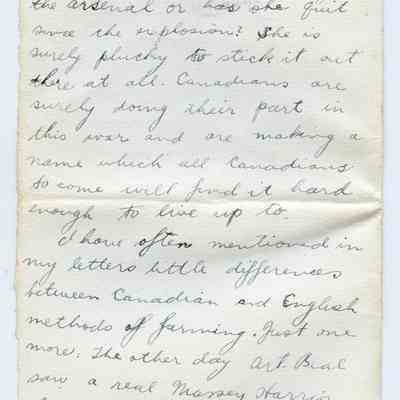 the arsenal or has she quit
since the explosion? She is
surely plucky to stick it out
there at all. Canadians are
surely doing their part in
this war and are making a
name which all Canadians
to come will find it hard
enough to live up to.
I have often mentioned in
my letters little differences
between Canadian and English
methods of farming. Just one
more. The other day Art. Beal
saw a real Massey Harris